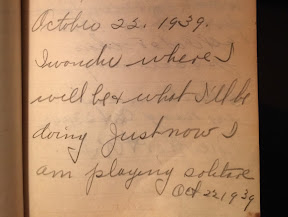 October 22. 1939.
I wonder where I
will be & what I'll be
doing Just now I
am playing solitare
Oct 22, 1939